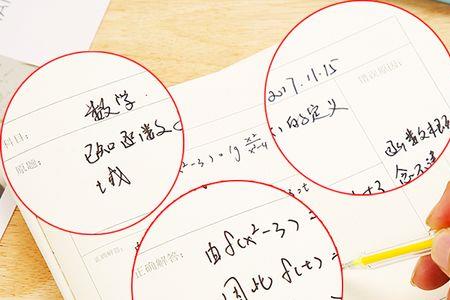 科目:
数学
2017.11.15
错误原因:
原题:
已知函数
²-3)=lg x²/x²-4
的定义
域
函数概
念不清
正确解答:
正确解答:
由f(x²-3)=
因此f(t)=